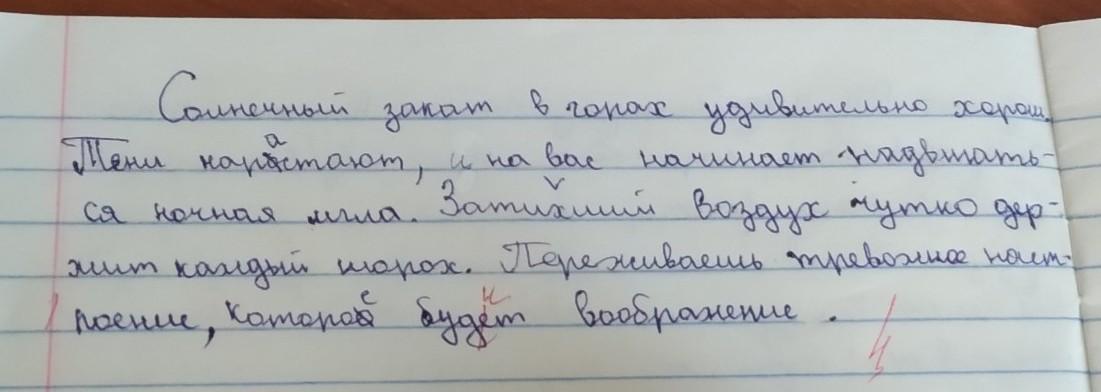 Солнечный закат в горах удивительно хорош.
Тени нарастают, и на вас начинает надвигать-
ся ночная мгла. Затихший воздух чутко дер-
жит каждый шорох. Переживаешь тревожное наст-
роение, которое будит воображение.